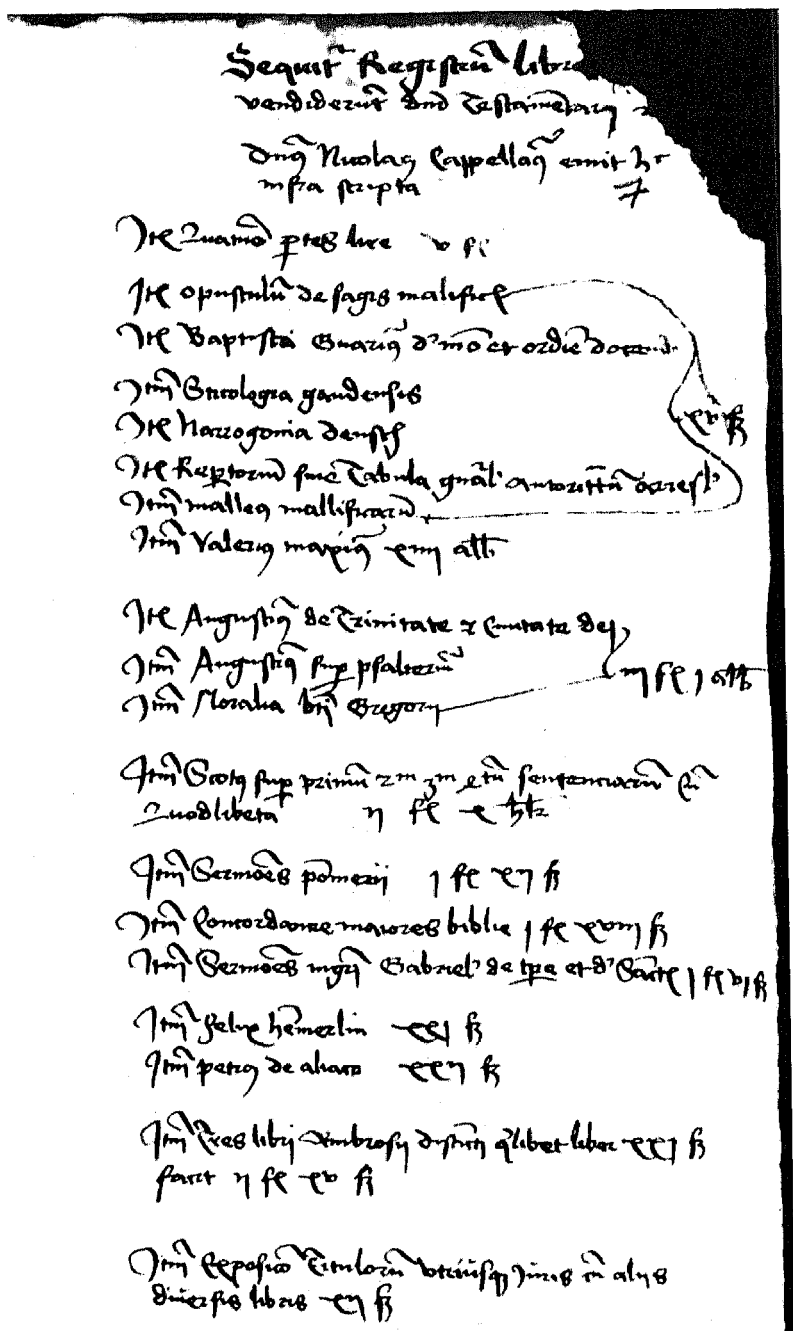 Sequit~ Registrū libro
vendiderūt dnd Testamētarij
Dn9 Nicola9 Cappella9 emit h
infra scripta
Itē Quatuor ptes lire v fl
Itē opusculū de sagis malificis
Itē Baptista Guarin9 d' mō et ordīe docendi
Itm Sticologia gaudensis
Itē Narrogonia deusch
Itē Reptorium siue Tabula gnāl' autoritatū arrest'
Itm malle9 mallificarū
xv ß
Itm Valeri9 maxim9 xiiij alb
Itē Augustin9 de Trinitate et Ciuitate dei
Itm Augustin9 sup psalteriū
Itm Moralia bti Gregorij
iij fl j alb
Itm Scot9 sup primū 2m 3m et 4tū sentenciarū cū
Quodlibeta ij fl x
Itm Sermoēs pomerii j fl xij ß
Itm Concordantie maiores biblie j fl xviij ß
Itm Sermoēs mgri Gabriel' de tpe et d' Sanctis j fl vj ß
Itm Felix hemerlin xxj ß
Itm petr9 de aliaco xxij ß
Itm Tres libri Ambrosij distincti qlibet liber xxj ß
facit ij fl xv ß
Itm Exposicō Titulorū vtriusq Juris cū alijs
diuersis libris xij ß